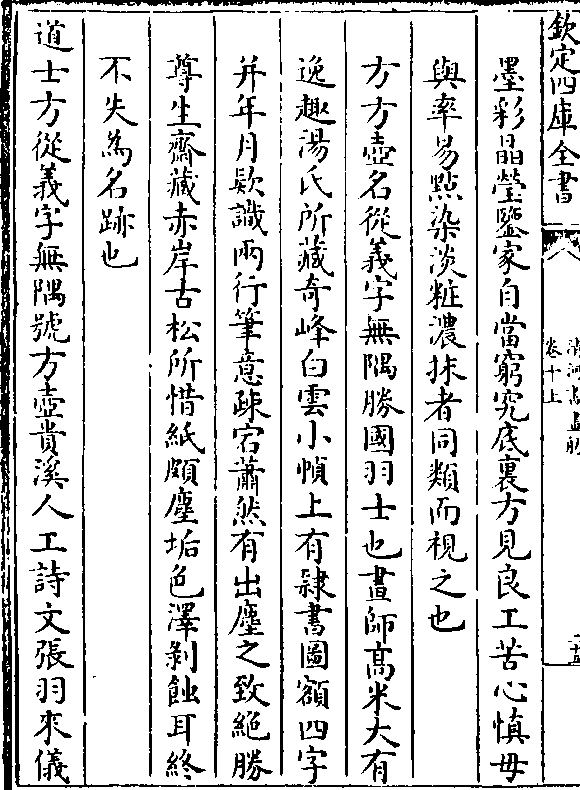 欽定四庫全書
清河書畫舫
卷十上
墨彩晶瑩鑒家自當窮究底裏方見良工苦心慎毋
與率易點染淡粧濃抹者同類而視之也
方方壺名從義字無隅勝國羽士也畫師高米大有
逸趣湯氏所藏奇峰白雲小幀上有隸書圖額四字
并年月欵識兩行筆意疎宕蕭然有出塵之致絶勝
尊生齋藏赤岸古松所惜紙頗塵垢色澤剝蝕耳終
不失為名跡也
道士方從義字無隅號方壺貴溪人工詩文張羽來儀